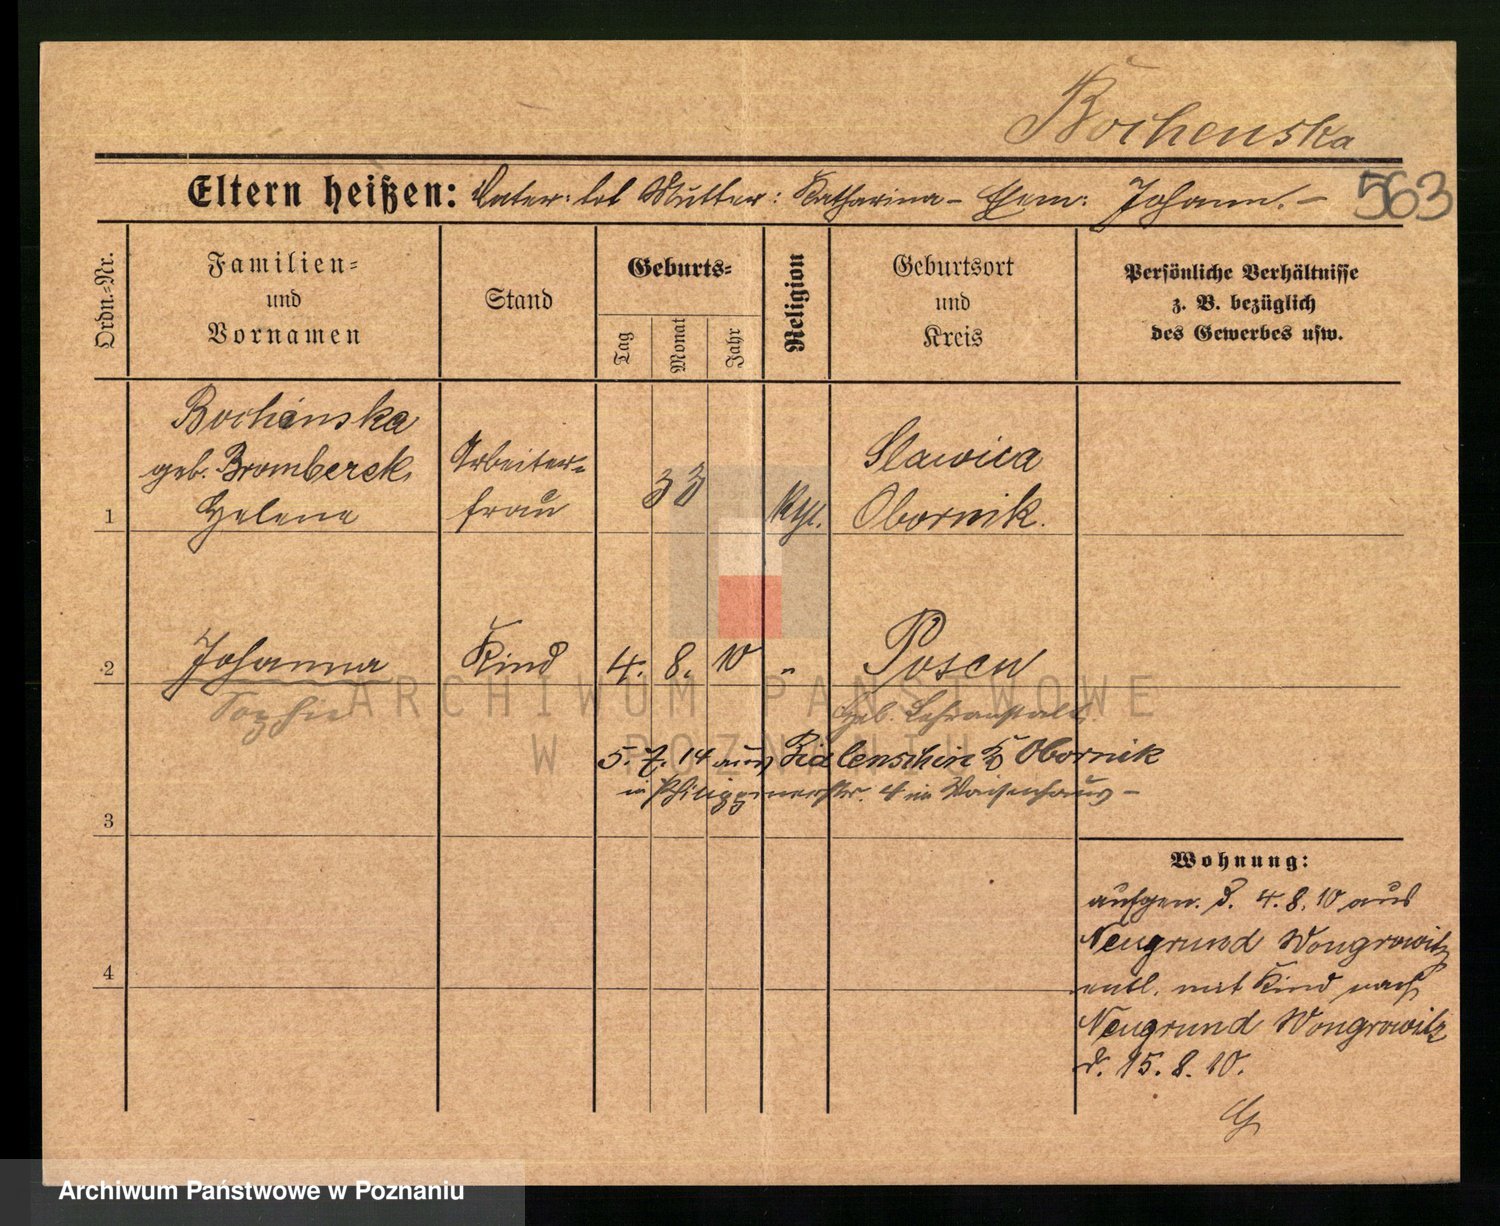 Bochenska
Eltern heißen: Vater: tot Mutter: Katharina – Ehem: Johann. –
563
Ordn.-Nr.
Familien-
und
Vornamen
Stand
Geburts-
Tag
Monat
Jahr
Religion
Geburtsort
und
Kreis
Persönliche Verhältnisse
z. B. bezüglich
des Gewerbes usw.
1
Bochinska
geb. Bromberek
Helene
Arbeiter-
frau
33
Kth.
Slawica
Obornik.
2
Johanna
Kind
4. 8. 10
"
Posen
Sophie
Geb. Lehranstalt
5. 7. 14 aus Bialenschin K Obornik
in Philippinenstr. 4 im Waisenhaus –
3
4
Wohnung:
aufgen. d. 4. 8. 10 aus
Neugrund Wongrowitz
entl. mit Kind nach
Neugrund Wongrowitz
d. 15. 8. 10.
ARCHIWUM PAŃSTWOWE
W POZNANIU
Archiwum Państwowe w Poznaniu